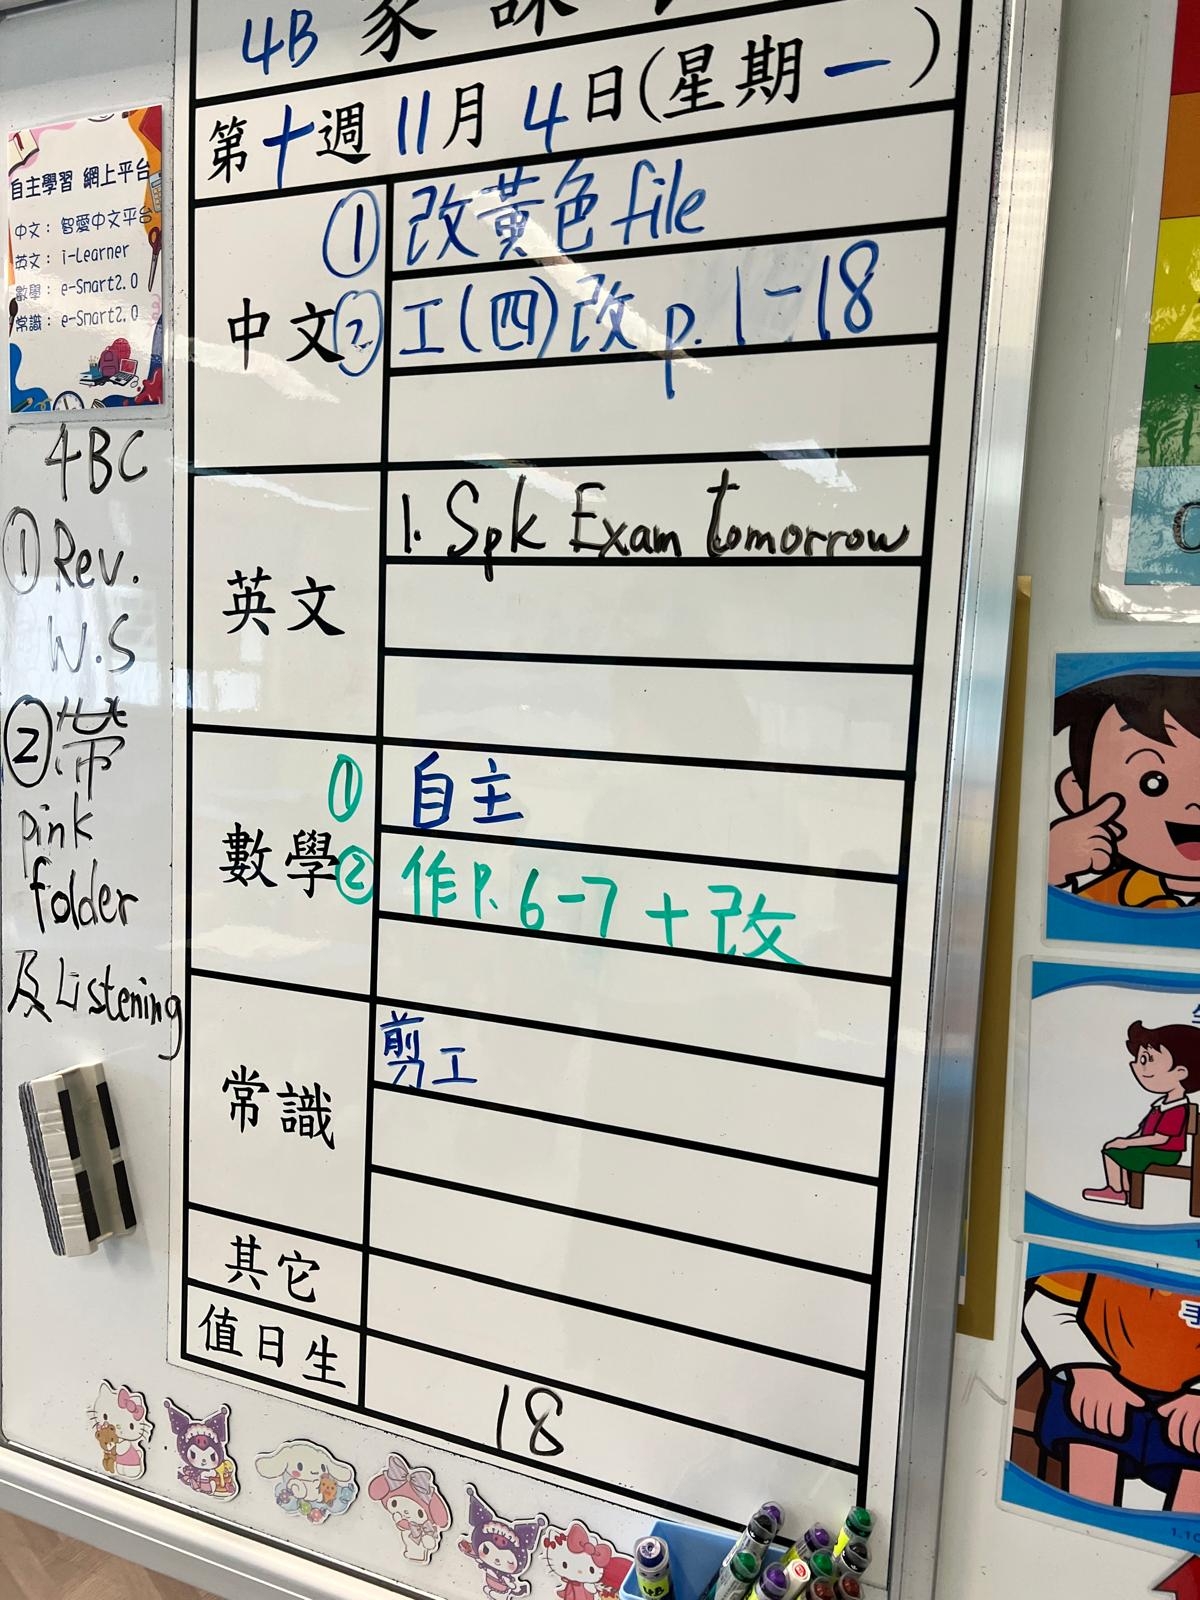 4B 家課
第十週 11月4日(星期一)
自主學習 網上平台
中文：智愛中文平台
英文：i-Learner
數學：e-Smart2.0
常識：e-Smart2.0
中文
① 改黃色file
② 工(四)改 p. 1-18
英文
1. Spk Exam tomorrow
數學
① 自主
② 作P. 6-7 + 改
常識
剪工
其它
值日生
18
4BC
① Rev.
W.S
② 帶
pink
folder
及Listening